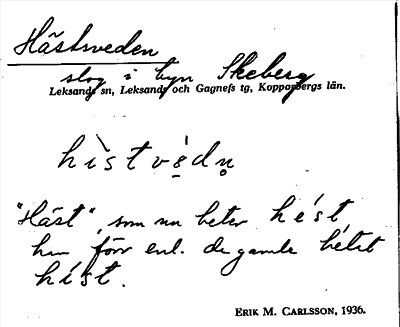 Hästsveden
slog i byn Skeberg
Leksands sn, Leksands och Gagnefs tg, Kopparbergs län.
hìstvè̤dn̥
"Häst", som nu heter hést
har förr enl. de gamle hétet
híst.
ERIK M. CARLSSON, 1936.